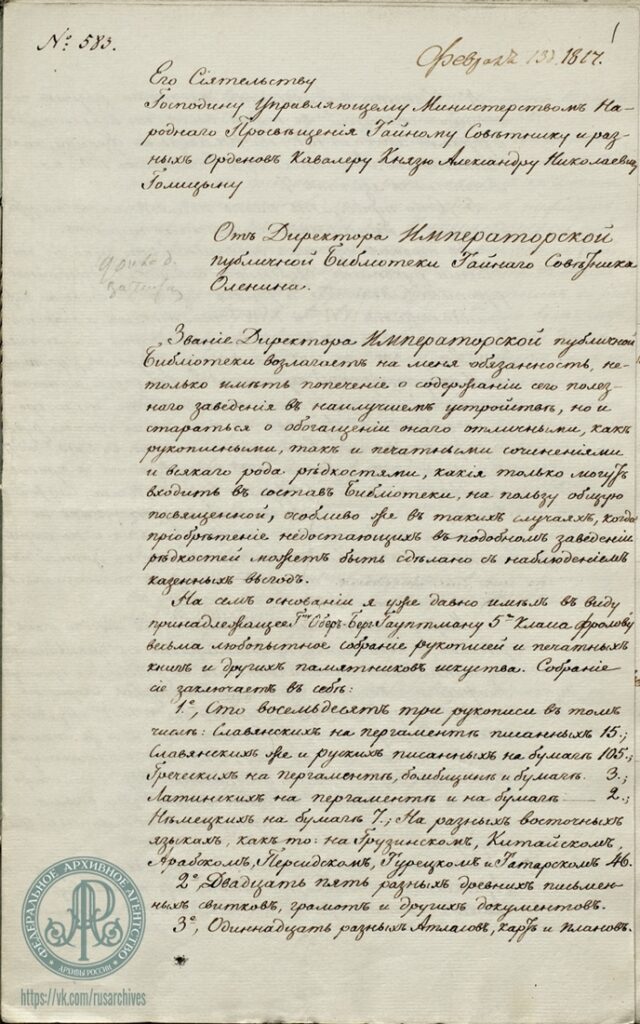 № 583.
1
Февраля 13д. 1817.
Его Сіятельству
Господину Управляющему Министерствомъ На-
роднаго Просвѣщенія Тайному Совѣтнику и раз-
ныхъ орденовъ Кавалеру Князю Александру Николаевичу
Голицыну
Отъ Директора Императорской
публичной Библіотеки Тайнаго Совѣтника
Оленина.
Званіе Директора Императорской публичной
Библіотеки возлагаетъ на меня обязанность, не-
только имѣть попеченіе о содержаніи сего полез-
наго заведенія въ наилучшемъ устройствѣ, но и
стараться о обогащеніи онаго отличными, какъ
рукописными, такъ и печатными сочиненіями
и всякаго рода рѣдкостями, какія только могутъ
входить въ составъ Библіотеки, на пользу общую
посвященной, особливо же въ такихъ случаяхъ, когда
пріобрѣтеніе недостающихъ въ подобномъ заведеніи
рѣдкостей можетъ быть сдѣлано съ наблюденіемъ
казенныхъ выгодъ.
На семъ основаніи я уже давно имѣлъ въ виду
принадлежащее Гну Оберъ-Бергъ Гауптману 5го Класа Фролову
весьма любопытное собраніе рукописей и печатныхъ
книгъ и другихъ памятниковъ искуства. Собраніе
сіе заключаетъ въ себѣ:
1е, Сто восемьдесятъ три рукописи въ томъ
числѣ: Славянскихъ на пергаментѣ писанныхъ 15.;
Славянскихъ же и рускихъ писанныхъ на бумагѣ 105.;
Греческихъ на пергаментѣ, бомбицинѣ и бумагѣ. 3.;
Латинскихъ на пергаментѣ и на бумагѣ — 2.;
Нѣмецкихъ на бумагѣ 7.; На разныхъ восточныхъ
языкахъ, какъ то: на Грузинскомъ, Китайскомъ,
Арабскомъ, Персидскомъ, Турецкомъ и Татарскомъ 46.
2е, Двадцать пять разныхъ древнихъ письмен-
ныхъ свитковъ, грамотъ и другихъ документовъ.
3е, Одиннадцать разныхъ Атласовъ, картъ и плановъ.
ФЕДЕРАЛЬНОЕ АРХИВНОЕ АГЕНТСТВО
АРХИВЫ РОССИИ
https://vk.com/rusarchives